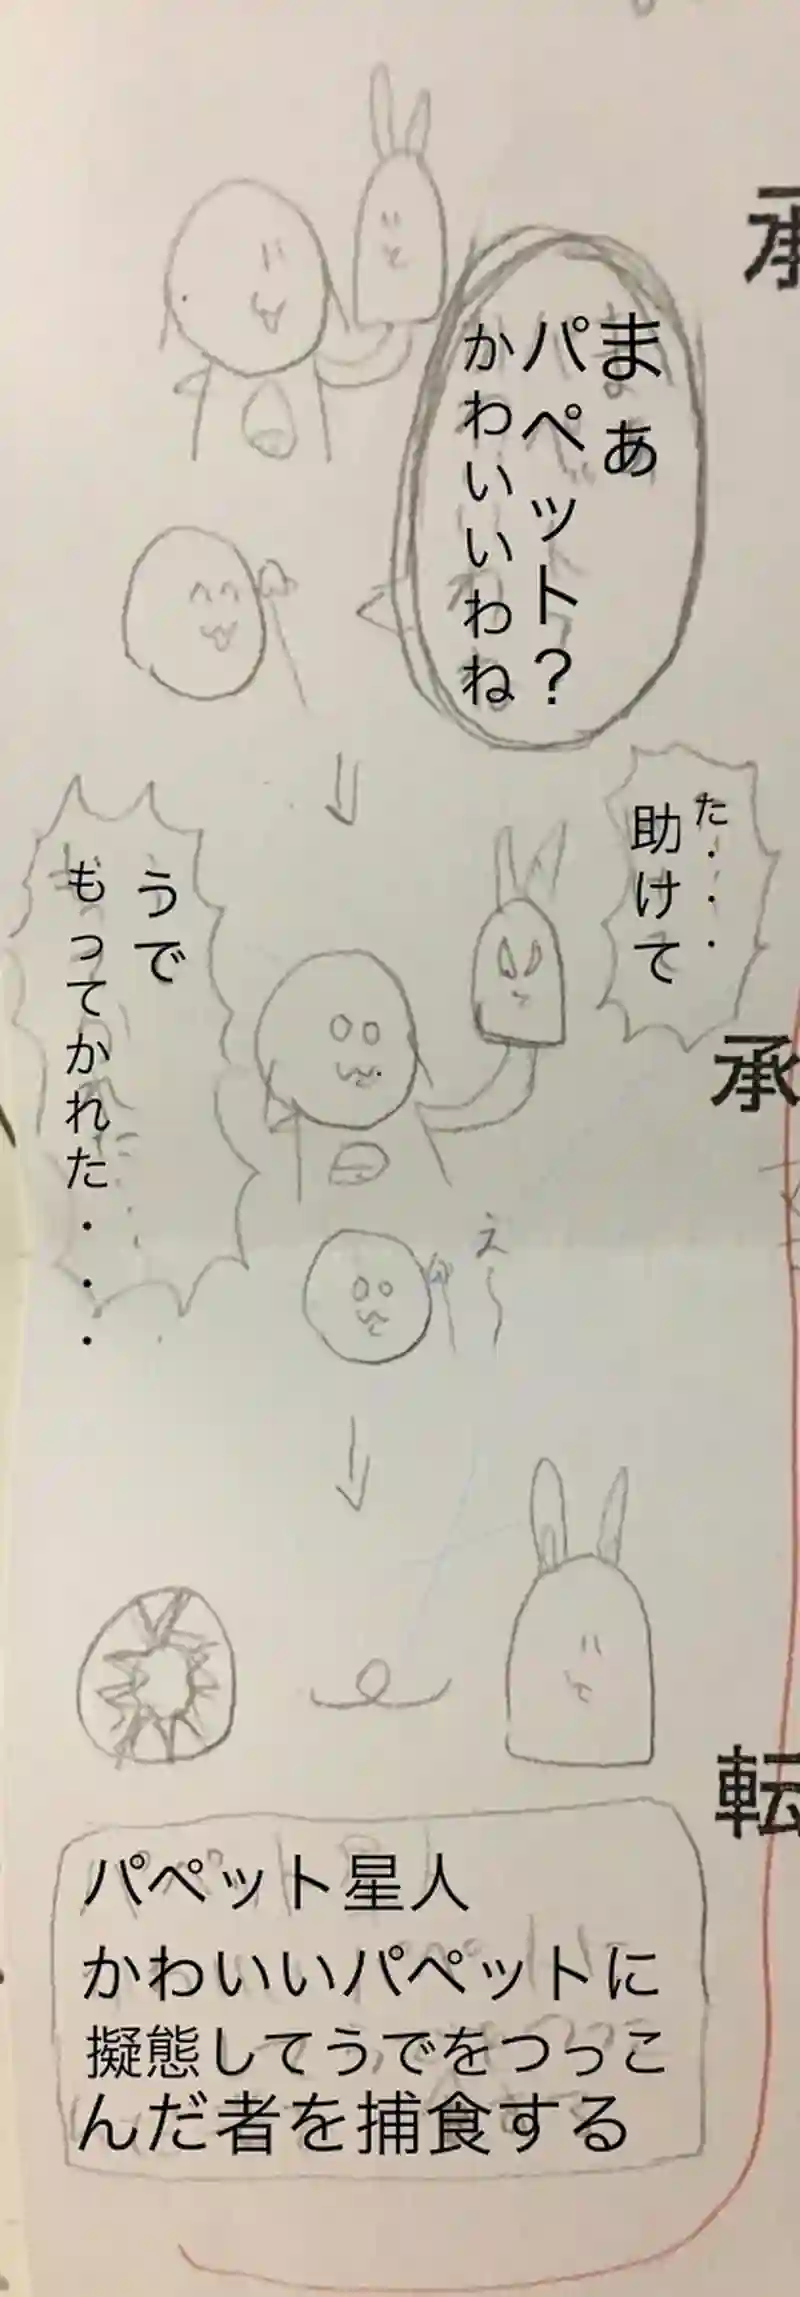 承
まぁ
パペット?
かわいいわね
た・・・
助けて
承
うで
もってかれた・・・
え〜
転
パペット星人
かわいいパペットに
擬態してうでをつっこ
んだ者を捕食する